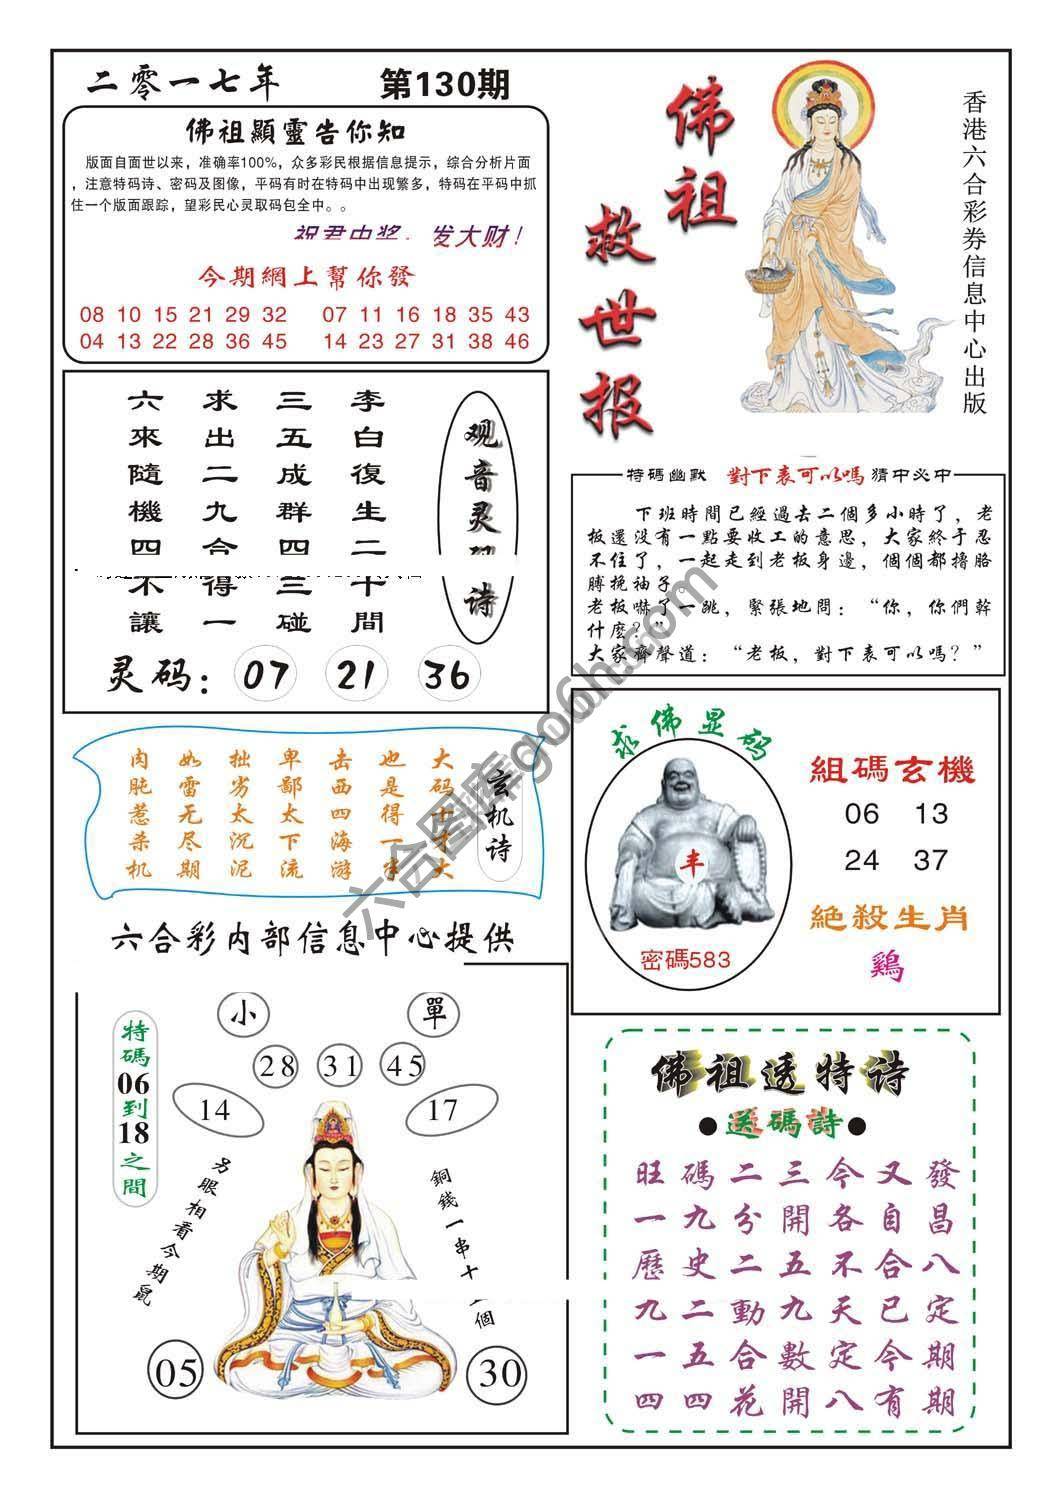 二零一七年 第130期
佛祖顯靈告你知
版面自面世以来，准确率100%，众多彩民根据信息提示，综合分析片面
，注意特码诗、密码及图像，平码有时在特码中出现繁多，特码在平码中抓
住一个版面跟踪，望彩民心灵取码包全中。。
祝君中奖，发大财！
今期網上幫你發
08 10 15 21 29 32 07 11 16 18 35 43
04 13 22 28 36 45 14 23 27 31 38 46
佛祖
救世报
香港六合彩券信息中心出版
观音灵
诗
李白復生二十間
三五成群四三碰
求出二九合得一
六來隨機四不讓
灵码：07 21 36
特碼幽默 對下表可以嗎 猜中必中
下班時間已經過去二個多小時了，老
板還没有一點要收工的意思，大家終于忍
不住了，一起走到老板身邊，個個都擼胳
膊挽袖子。
老板嚇了一跳，緊張地問：“你，你們幹
什麽？”
大家齊聲道：“老板，對下表可以嗎？”
玄机诗
大码十大
也是得一半
击西四海游
卑鄙太下流
拙劣太沉泥
如雷无尽期
肉肫惹杀机
求佛显码
丰
密碼583
組碼玄機
06 13
24 37
絶殺生肖
鷄
六合彩内部信息中心提供
特碼06到18之間
小 單
28 31 45
14 17
另眼相看今期鼠
銅錢一串十 個
05 30
佛祖透特诗
●送碼詩●
旺碼二三今又發
一九分開各自昌
歷史二五不合八
九二動九天已定
一五合數定今期
四四花開八有期
六合图库go6h.com